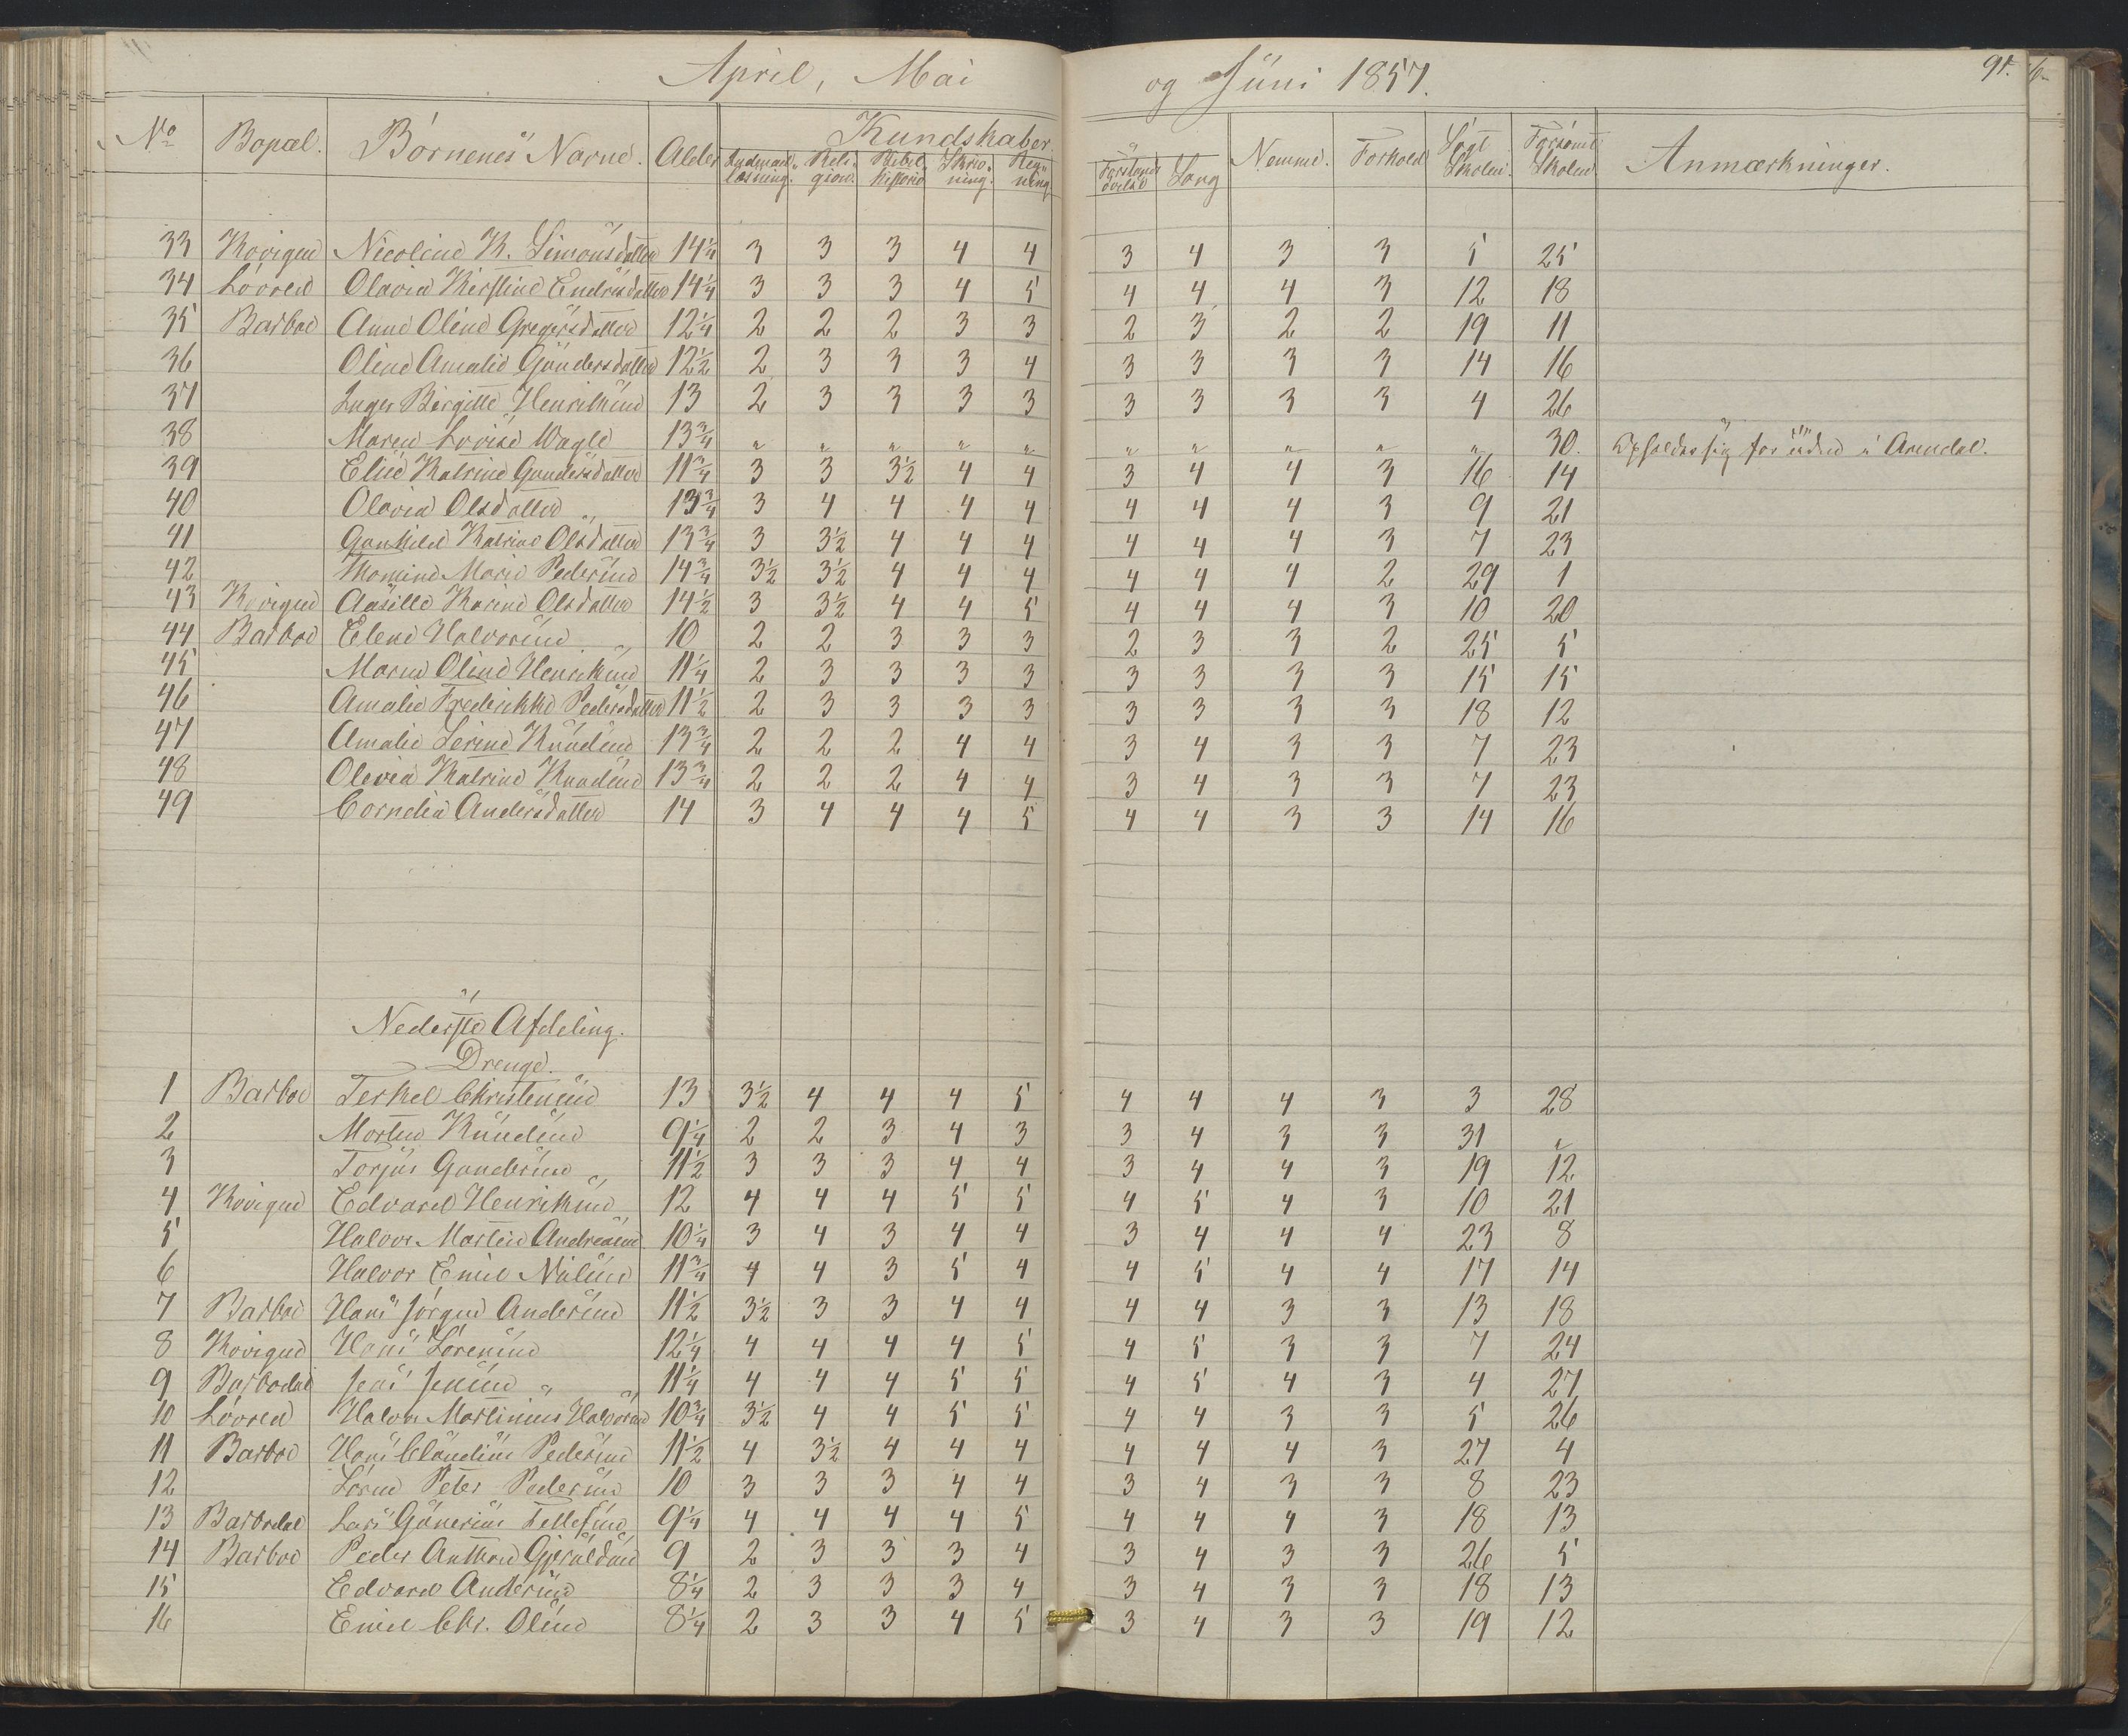 April, Mai og Juni 1857. 91.
No Bopæl. Börnenes Navne. Alder Kundskaber. Nemme. Forhold Sögt Skolen. Forsömt Skolen. Anmærkninger.
Indenadlæsning. Religion. Bibelhistorie Skrivning. Regning Forstandsövelse Sang
33 Kovigen Nicoline K. Simonsdatter 14 1/4 3 3 3 4 4 3 4 3 3 5 25
34 Lövren Olavia Kirstine Endresdatter 14 1/4 3 3 3 4 5 4 4 4 3 12 18
35 Barboe Anne Oline Gregersdatter 12 1/4 2 2 2 3 3 2 3 2 2 19 11
36 Oline Amalie Gundersdatter 12 1/2 2 3 3 3 4 3 3 3 3 14 16
37 Inger Birgitte Henriksen 13 2 3 3 3 3 3 3 3 3 4 26
38 Maren Lovise Wagle 13 3/4 " " " " " " " " " " 30. Opholder sig for tiden i Arendal.
39 Eline Katrine Gundersdatter 11 3/4 3 3 3 1/2 4 4 3 4 4 3 16 14
40 Olavia Olsdatter 13 3/4 3 4 4 4 4 4 4 4 3 9 21
41 Gunhild Katrine Olsdatter 13 3/4 3 3 1/2 4 4 4 4 4 4 3 7 23
42 Thomine Marie Pedersen 14 3/4 3 1/2 3 1/2 4 4 4 4 4 4 2 29 1
43 Kovigen Aasille Karine Olsdatter 14 1/2 3 3 1/2 4 4 5 4 4 4 3 10 20
44 Barboe Elene Halvorsen 10 2 2 3 3 3 2 3 3 2 25 5
45 Maren Oline Henriksen 11 1/4 2 3 3 3 3 3 3 3 3 15 15
46 Amalie Frederikke Pedersdatter 11 1/2 2 3 3 3 3 3 3 3 3 18 12
47 Amalie Serine Knudsen 13 3/4 2 2 2 4 4 3 4 3 3 7 23
48 Olevia Katrine Knudsen 13 3/4 2 2 2 4 4 3 4 3 3 7 23
49 Cornelia Andersdatter 14 3 4 4 4 5 4 4 3 3 14 16
Nederste Afdeling.
Drenge.
1 Barboe Terkel Christensen 13 3 1/2 4 4 4 5 4 4 4 3 3 28
2 Morten Knudsen 9 1/4 2 2 3 4 3 3 4 3 3 31 "
3 Torjus Gundersen 11 1/2 3 3 3 4 4 3 4 4 3 19 12
4 Kovigen Edvard Henriksen 12 4 4 4 5 5 4 5 4 3 10 21
5 Halvor Martin Andreasen 10 1/4 3 4 3 4 4 3 4 4 4 23 8
6 Halvor Emil Nilsen 11 3/4 4 4 3 5 4 4 5 4 4 17 14
7 Barboe Hans Jörgen Andersen 11 1/2 3 1/2 3 3 4 4 4 4 3 3 13 18
8 Kovigen Hans Sörensen 12 1/4 4 4 4 4 5 4 5 3 3 7 24
9 Barbodal Jens Jensen 11 1/4 4 4 4 5 5 4 5 4 3 4 27
10 Lövren Halvor Martinius Halvorsen 10 3/4 3 1/2 4 4 5 5 4 4 3 3 5 26
11 Barboe Hans Claudius Pedersen 11 1/2 4 3 1/2 4 4 4 4 4 4 3 27 4
12 Sören Peter Pedersen 10 3 3 3 4 4 3 4 3 3 8 23
13 Barbodal Lars Gunerius Tellefsen 9 1/4 4 4 4 4 5 4 4 4 3 18 13
14 Barboe Peder Anthon Gjeruldsen 9 2 3 3 3 4 3 4 3 3 26 5
15 Edvard Andersen 8 1/4 2 3 3 3 4 3 4 3 3 18 13
16 Emil Chr. Olsen 8 1/4 2 3 3 4 5 3 4 3 3 19 12